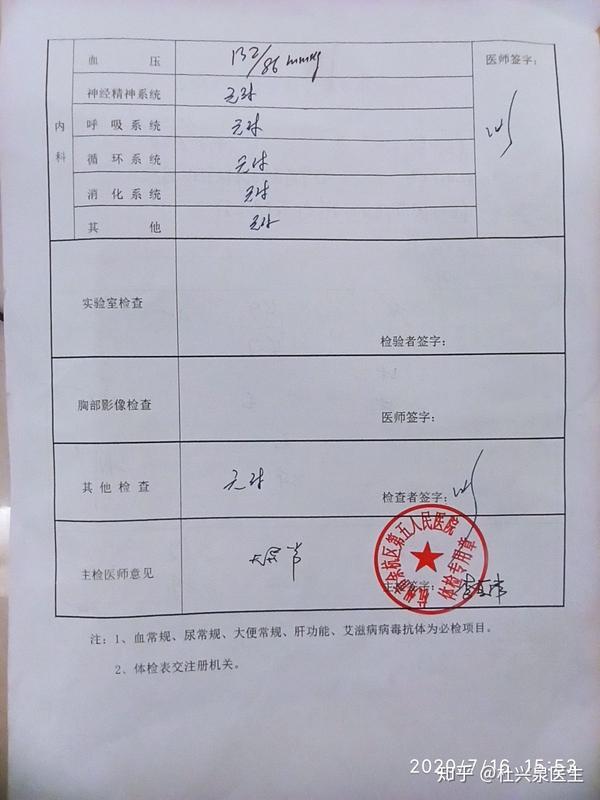 血压 132/86 mmHg 医师签字：
神经精神系统 无殊
内科
呼吸系统 无殊
循环系统 无殊
消化系统 无殊
其他 无殊
实验室检查
检验者签字：
胸部影像检查
医师签字：
其他检查 无殊
检查者签字：
主检医师意见
余杭区第五人民医院
体检专用章
注：1、血常规、尿常规、大便常规、肝功能、艾滋病病毒抗体为必检项目。
2、体检表交注册机关。
2020/7/16 15:53
知乎 @杜兴泉医生